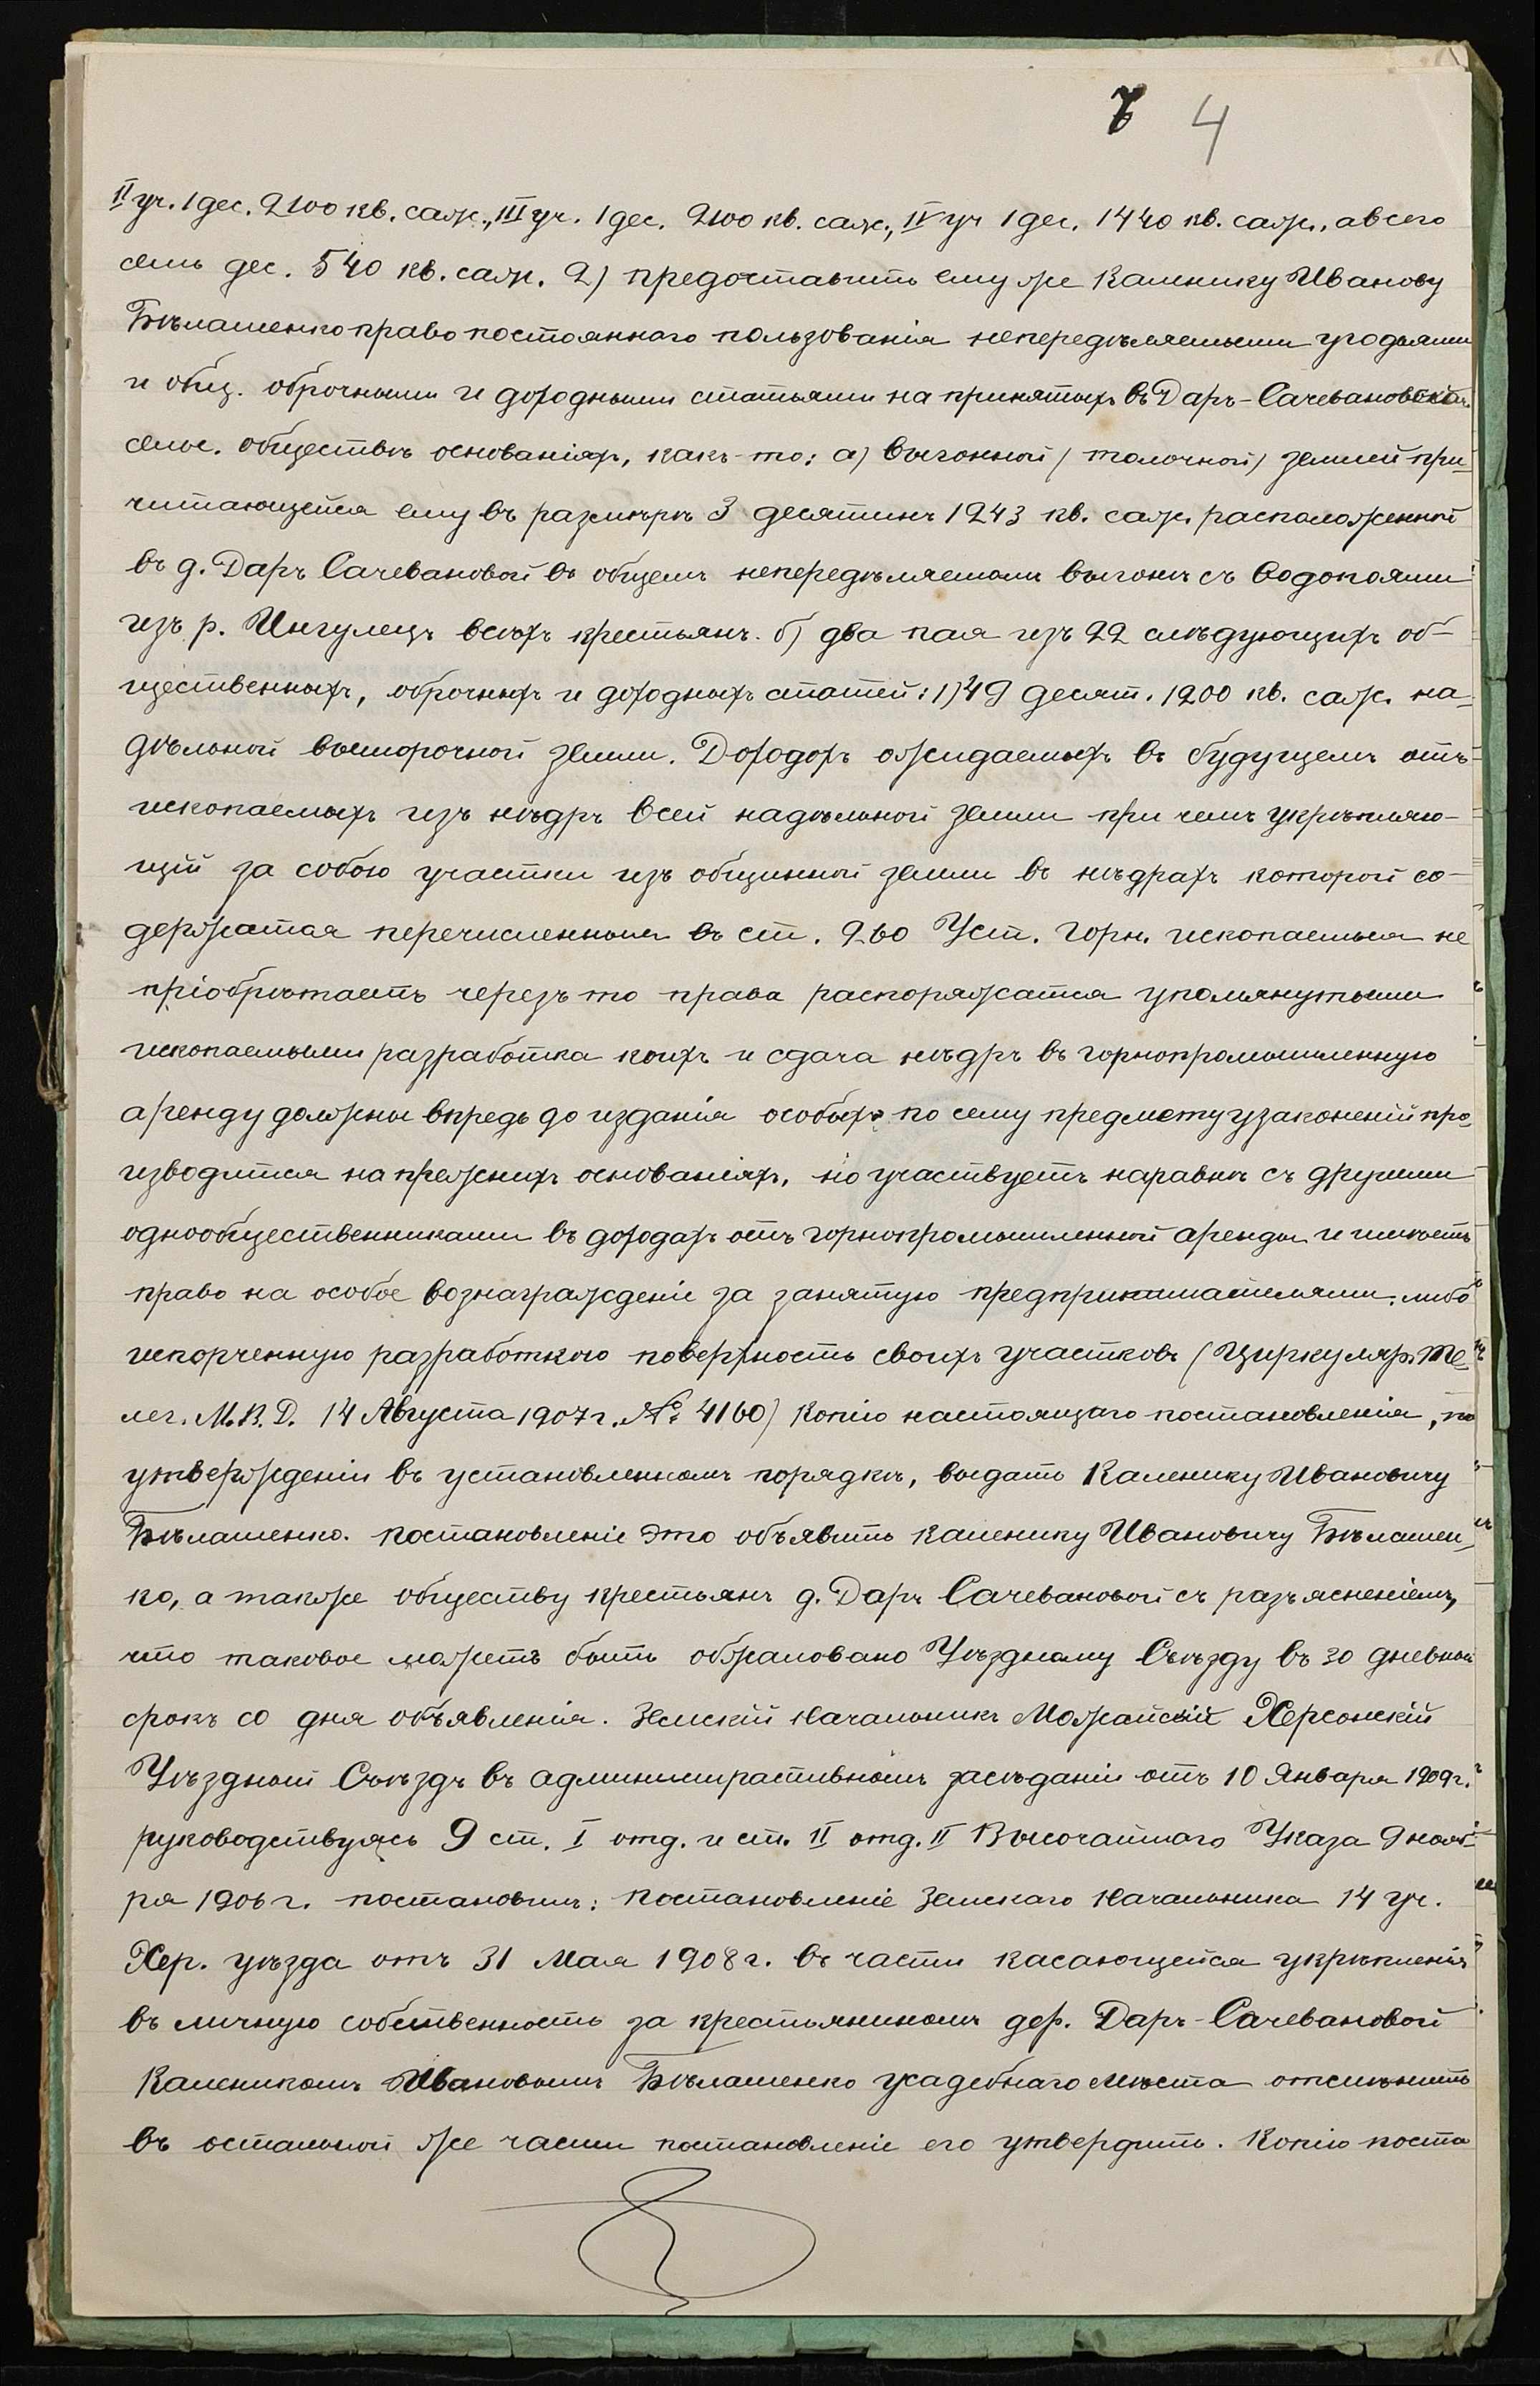 4
II уч. 1 дес. 2100 кв. саж., III уч. 1 дес. 2100 кв. саж., IV уч 1 дес. 1440 кв. саж., а всего
семь дес. 540 кв. саж. 2) предоставить ему же Каленику Иванову
Бѣлашенко право постояннаго пользованія непередѣляемыми угодьями
и общ. оброчными и доходными статьями на принятыхъ въ Даръ-Сачевановскомъ
сельс. обществѣ основаніяхъ, какъ-то: а) выгонной (толочной) землей при-
читающейся ему въ размѣрѣ 3 десятинъ 1243 кв. саж. расположенной
въ д. Даръ Сачевановой въ общемъ непередѣляемомъ выгонѣ съ водопоями
изъ р. Ингулецъ всѣхъ крестьянъ. б) два пая изъ 22 слѣдующихъ об-
щественныхъ, оброчныхъ и доходныхъ статей: 1) 49 десят. 1200 кв. саж. на-
дѣльной выморочной земли. Доходохъ ожидаемыхъ въ будущемъ отъ
ископаемыхъ изъ нѣдръ всей надѣльной земли при чемъ укрѣпляю-
щій за собою участки изъ общинной земли въ нѣдрахъ которой со-
держатся перечисленныя въ ст. 260 Уст. Горн. ископаемыя не
пріобрѣтаетъ черезъ то права распоряжатся упомянутыми
ископаемыми разработка коихъ и сдача нѣдръ въ горнопромышленную
аренду должны впредь до изданія особыхъ по сему предмету узаконеній про-
изводится на прежнихъ основаніяхъ, но участвуетъ наравнѣ съ другими
однообщественниками въ доходахъ отъ горнопромышленной аренды и имѣетъ
право на особое вознагражденіе за занятую предпринимателями либо
испорченную разработкою поверхность своихъ участковъ (Циркуляр. Те-
лег. М. В. Д. 14 Августа 1907 г. № 4160) Копію настоящаго постановленія, по
утвержденіи въ установленномъ порядкѣ, выдать Каленику Ивановичу
Бѣлашенко. Постановленіе это объявить Каленику Ивановичу Бѣлашен-
ко, а также обществу крестьянъ д. Даръ Сачевановой съ разъясненіемъ,
что таковое можетъ быть обжаловано Уѣздному Съѣзду въ 30 дневный
срокъ со дня объявленія. Земскій Начальникъ Можайскій Херсонскій
Уѣздный Съѣздъ въ административномъ засѣданіи отъ 10 Января 1909 г.
руководствуясь 9 ст. I отд. и ст. II отд. II Высочайшаго Указа 9 нояб-
ря 1906 г. постановилъ: Постановленіе Земскаго Начальника 14 уч.
Хер. уѣзда отъ 31 Мая 1908 г. въ части касающейся укрѣпленія
въ личную собственность за крестьяниномъ дер. Даръ-Сачевановой
Каленикомъ Ивановымъ Бѣлашенко усадебнаго мѣста отмѣнить
въ остальной же части постановленіе его утвердить. Копію поста